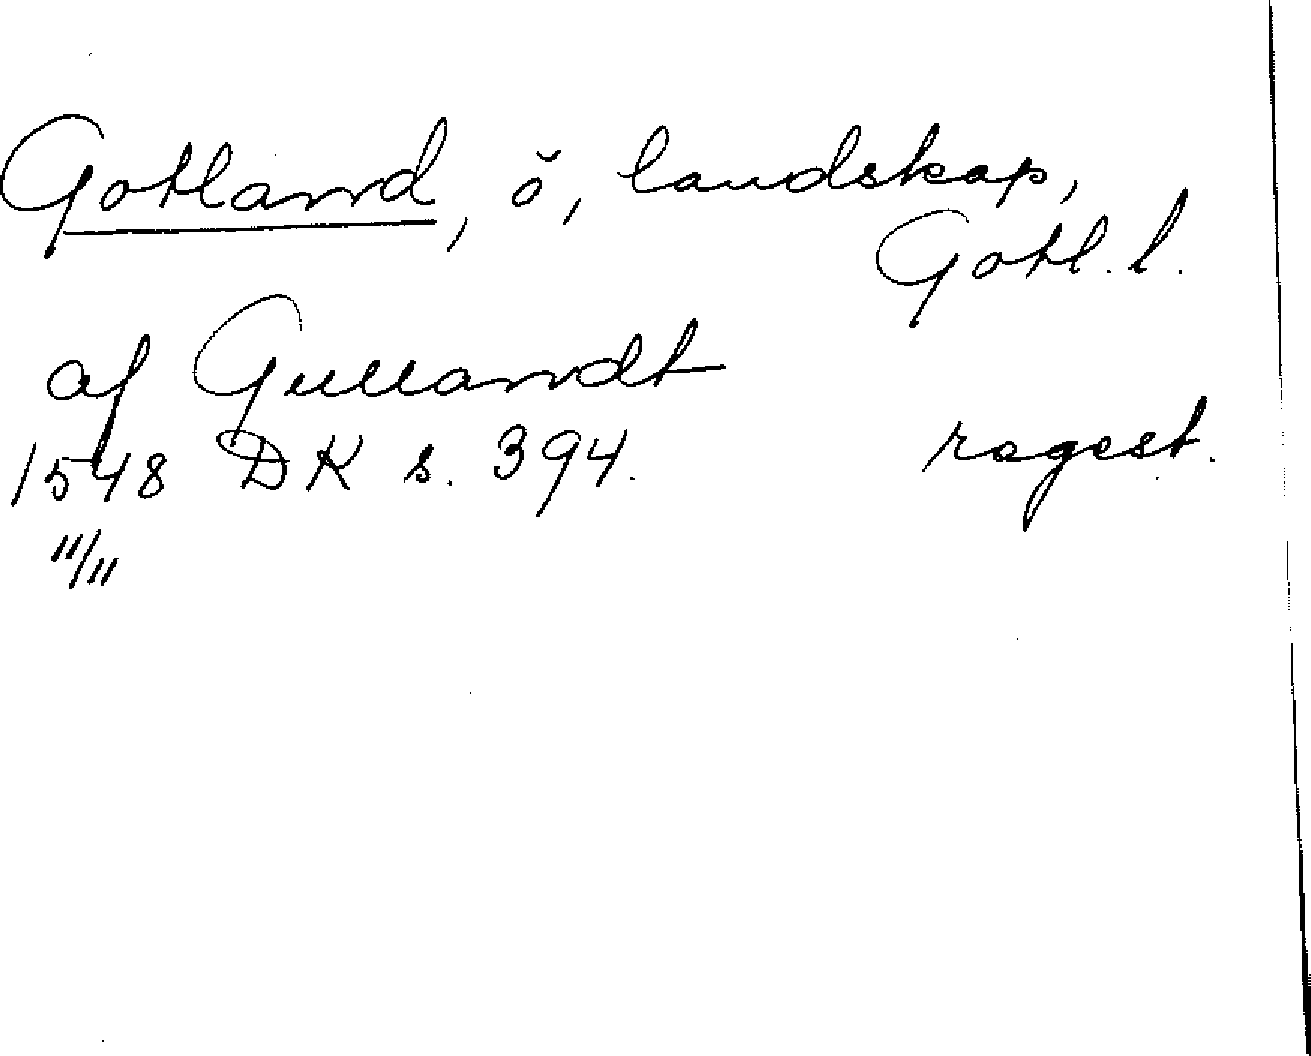 Gotland, ö, landskap,
Gotl. l.
af Gullandt
1548 DK s. 394. regest.
11/11